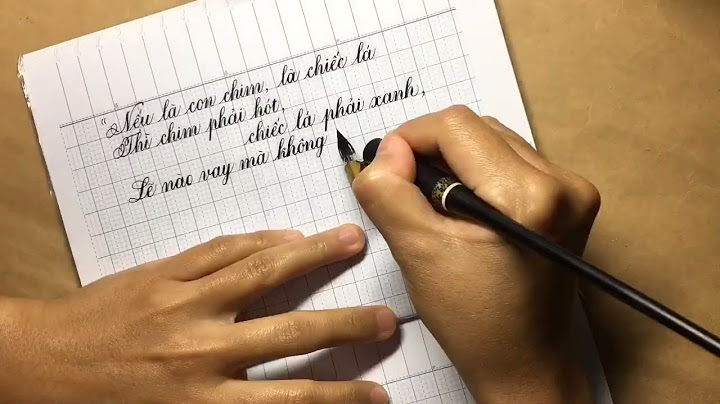 "Nếu là con chim, là chiếc lá
Thì chim phải hót,
chiếc lá phải xanh,
Lẽ nào vay mà không